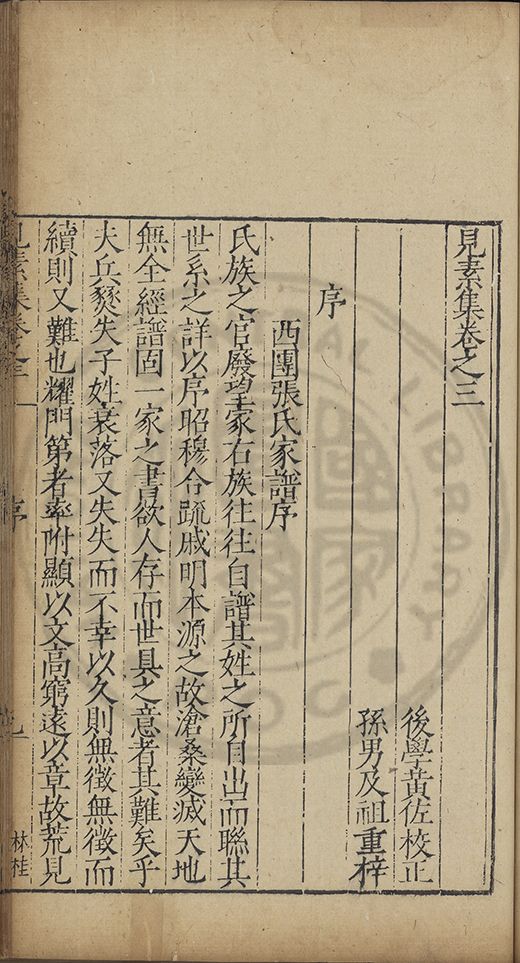 見素集卷之三
後學黃佐校正
孫男及祖重梓
序
西團張氏家譜序
氏族之官廢望家右族往往自譜其姓之所自出而聯其
世系之詳以序昭穆合疏戚明本源之故滄桑變滅天地
無全經譜固一家之書欲人存而世具之意者其難矣乎
夫兵燹失子姓衰落又失失而不幸以久則無徵無徵而
續則又難也耀門第者率附顯以文高窮遠以章故荒見
序
林桂